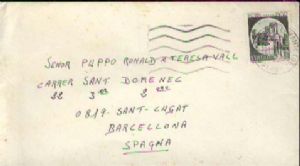 SEÑOR PUPPO RONALD & TERESA VALL
CARRER SANT DOMENEC
22 3 2
0819 - SANT-CUGAT
BARCELLONA
SPAGNA